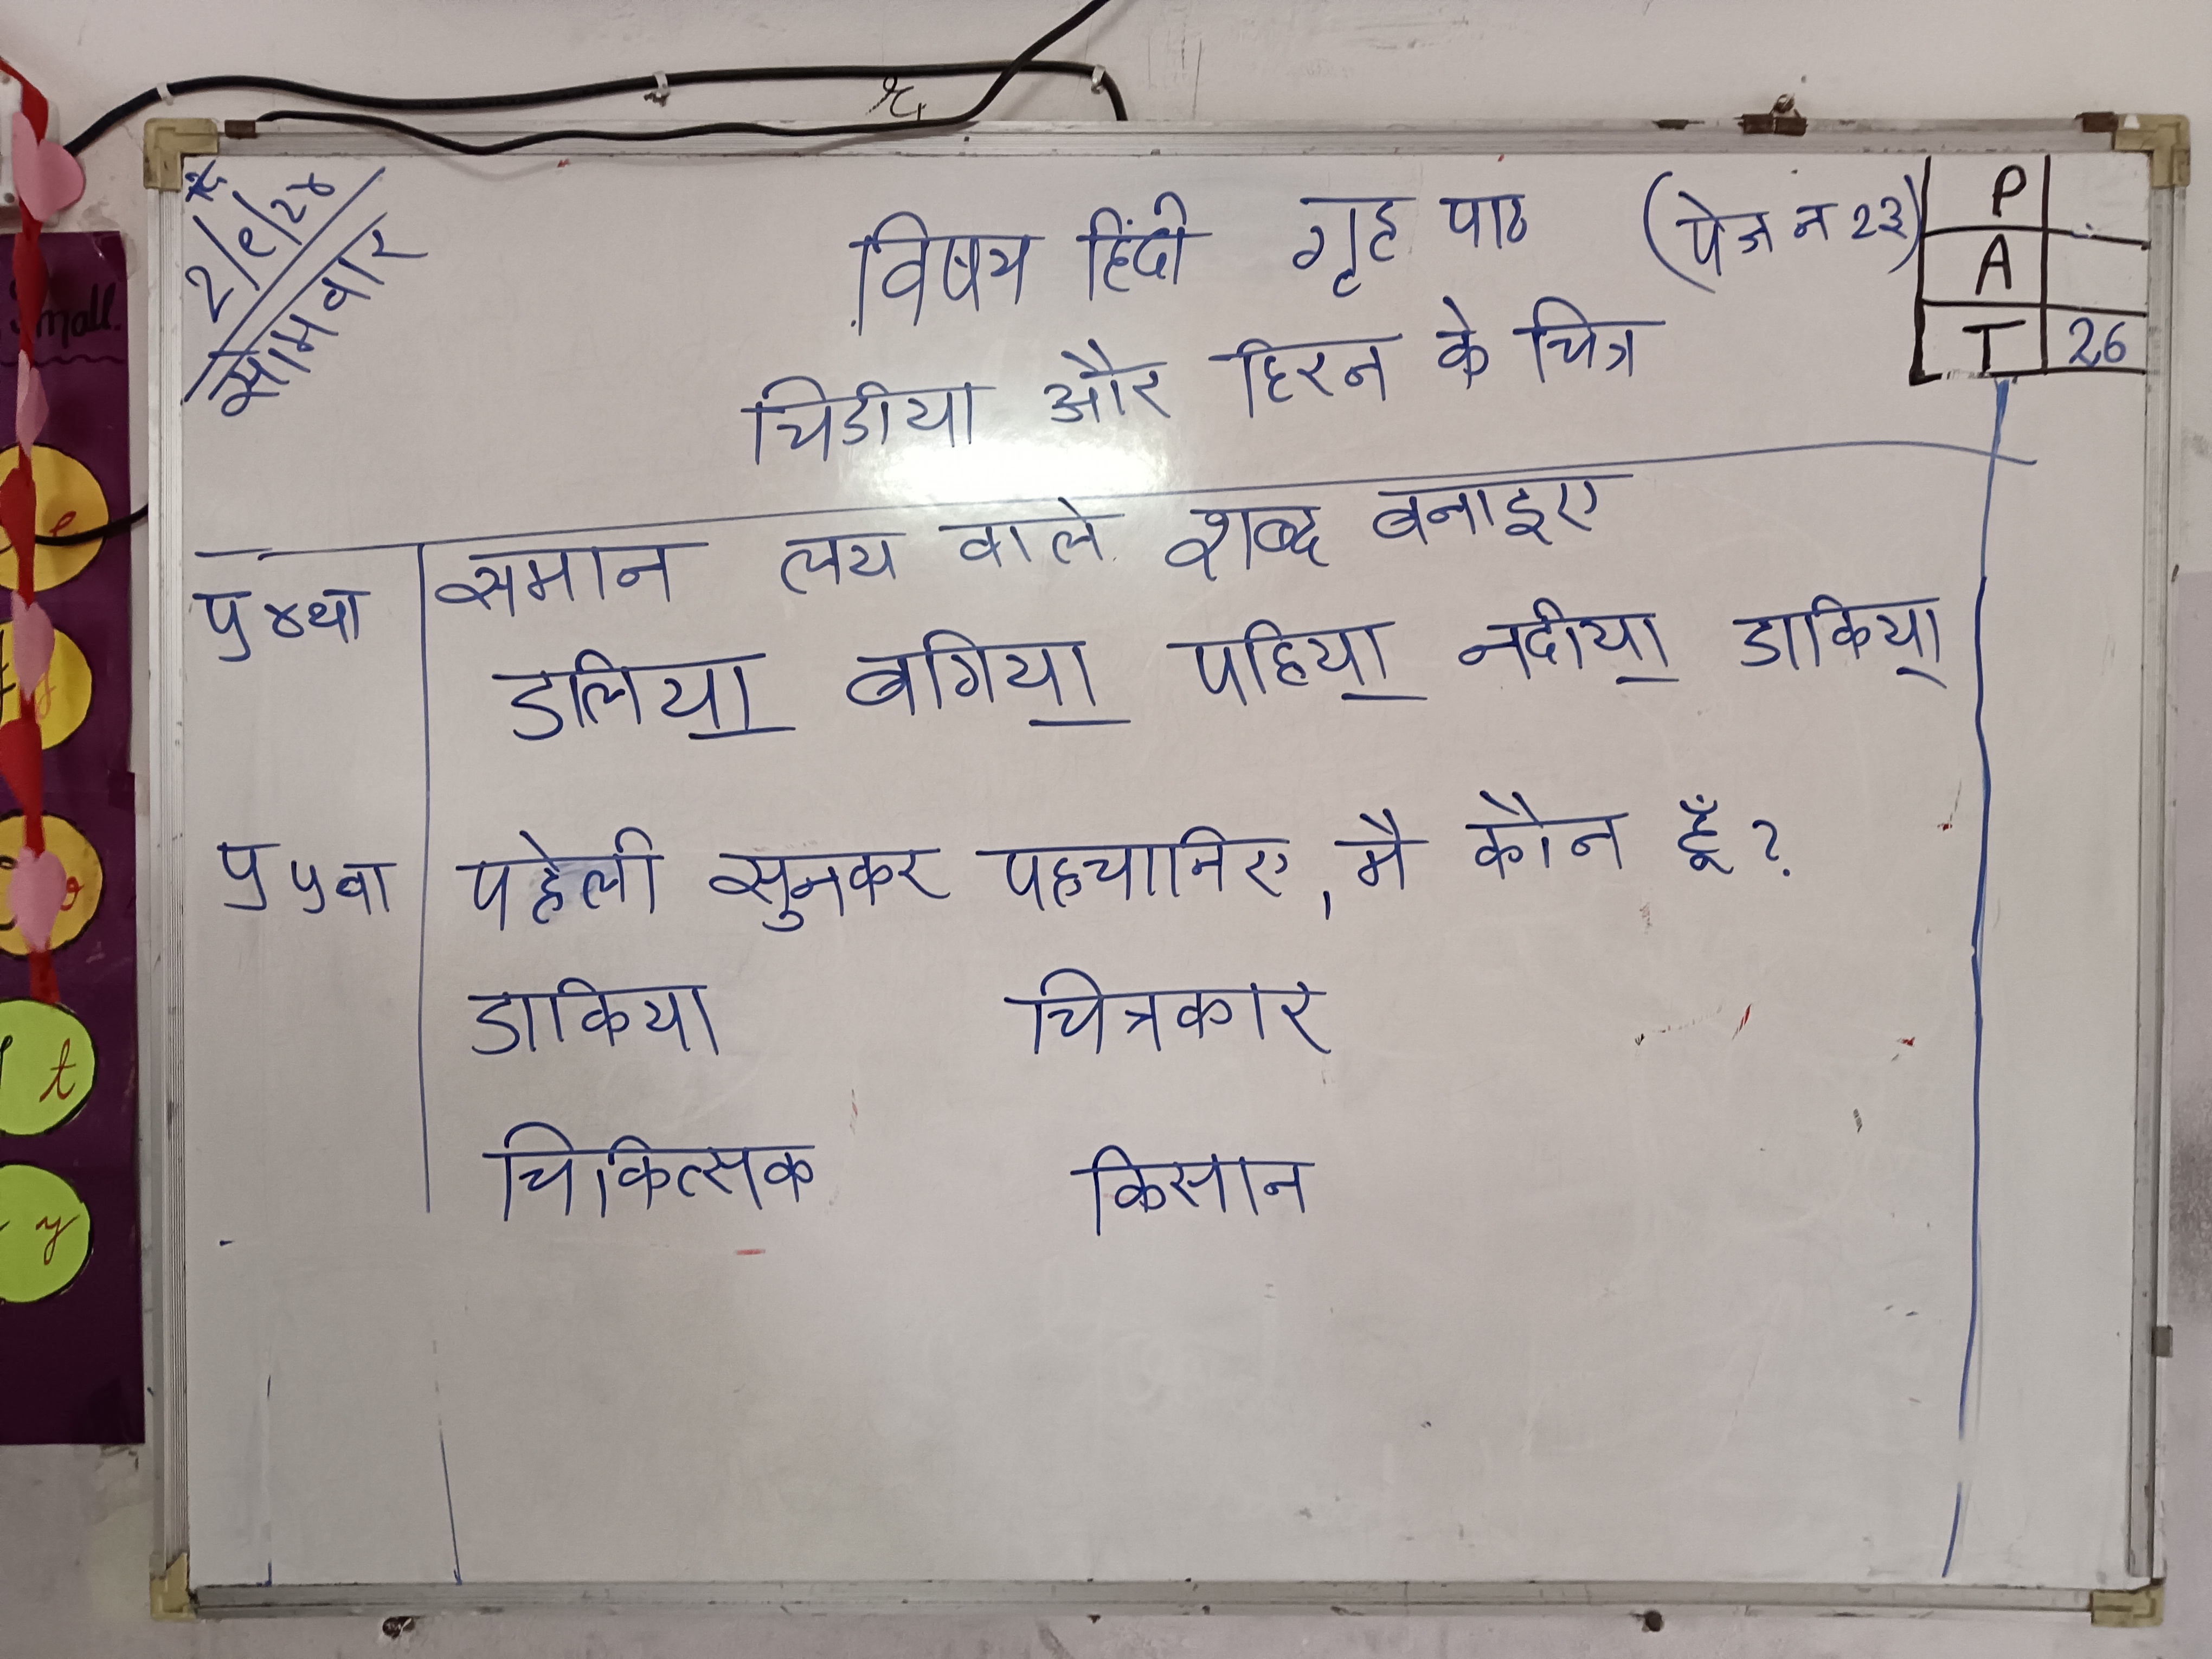 सोमवार
विषय हिंदी गृह पाठ (पेज न 23)
चिडीया और हिरन के चित्र
P
A
T 26
प्र ४था समान लय वाले शब्द बनाइए
डलिया बगिया पहिया नदीया डाकिया
प्र ५वा पहेली सुनकर पहचानिए, मै कौन हूँ?
डाकिया चित्रकार
चिकित्सक किसान
small
t
y